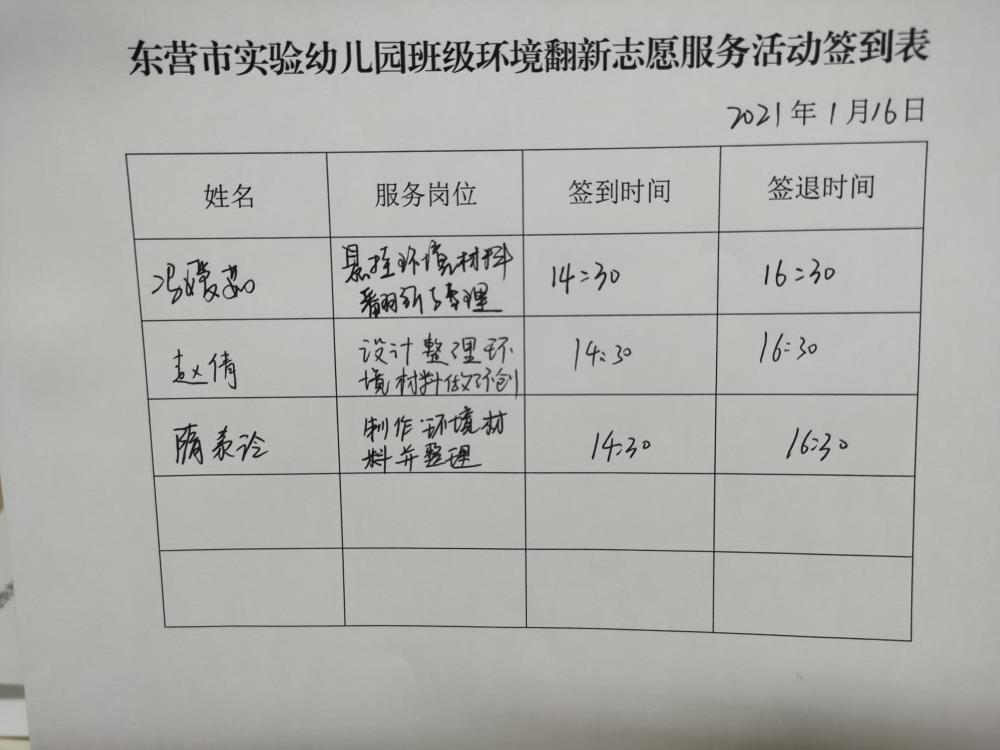 东营市实验幼儿园班级环境翻新志愿服务活动签到表
2021年1月16日
姓名 服务岗位 签到时间 签退时间
冯媛 悬挂环境材料 14:30 16:30
翻新与整理
赵倩 设计整理环 14:30 16:30
境材料做环创
隋 制作环境材 14:30 16:30
料并整理